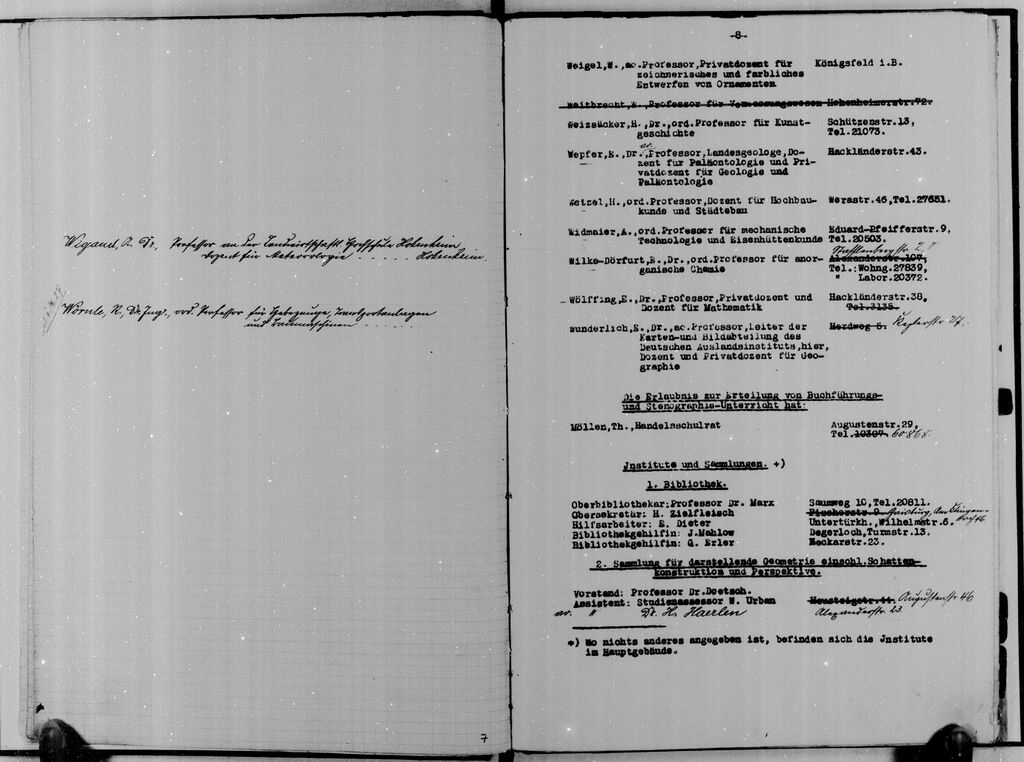 Wigand, A. Dr., Professor an der Landwirtschaftl. Hochschule Hohenheim
Dozent für Meteorologie . . . . . Hohenheim.
Wörnle, R., Dr. Jng., ord. Professor für Hebezeuge, Transportanlagen
und Baumaschinen . . . . .
7
-8-
Weigel,W.,ao.Professor,Privatdozent für Königsfeld i.B.
zeichnerisches und farbliches
Entwerfen von Ornamenten
Weitbrecht,W.,Professor für Vermessungswesen Hohenheimerstr.72.
Weizsäcker,H.,Dr.,ord.Professor für Kunst- Schützenstr.13,
geschichte Tel.21073.
ao.
Wepfer,E.,Dr.,Professor,Landesgeologe,Do- Hackländerstr.43.
zent für Paläontologie und Pri-
vatdozent für Geologie und
Paläontologie
Wetzel,H.,ord.Professor,Dozent für Hochbau- Werastr.46,Tel.27651.
kunde und Städtebau
Widmaier,A.,ord.Professor für mechanische Eduard-Pfeifferstr.9,
Technologie und Eisenhüttenkunde Tel.20503.
Wilke-Dörfurt,E.,Dr.,ord.Professor für anor- Alexanderstr.107,
ganische Chemie Tel.:Wohng.27839,
" Labor.20372.
Wölffing,E.,Dr.,Professor,Privatdozent und Hackländerstr.38,
Dozent für Mathematik Tel.3135.
Wunderlich,E.,Dr.,ao.Professor,Leiter der Herdweg 5. Keplerstr.
Karten-und Bildabteilung des
Deutschen Auslandsinstituts,hier,
Dozent und Privatdozent für Geo-
graphie
Die Erlaubnis zur Erteilung von Buchführungs-
und Stenographie-Unterricht hat:
Möllen,Th.,Handelsschulrat Augustenstr.29,
Tel.10307. 60868.
Jnstitute und Sammlungen. +)
1. Bibliothek.
Oberbibliothekar:Professor Dr. Marx Saumweg 10,Tel.20811.
Obersekretär: H. Zielfleisch Fischerstr.9
Hilfsarbeiter: E. Dieter Untertürkh.,Wilhelmstr.6.
Bibliothekgehilfin: J.Mahlow Degerloch,Turmstr.13.
Bibliothekgehilfin: G. Erler Neckarstr.23.
2. Sammlung für darstellende Geometrie einschl.Schatten-
konstruktion und Perspektive.
Vorstand: Professor Dr.Doetsch.
Assistent: Studienassessor W. Urban Heusteigstr.44. Augustenstr 46
ao. " Dr. H. Haerlen Alexanderstr. 23
+) Wo nichts anderes angegeben ist, befinden sich die Jnstitute
im Hauptgebäude.